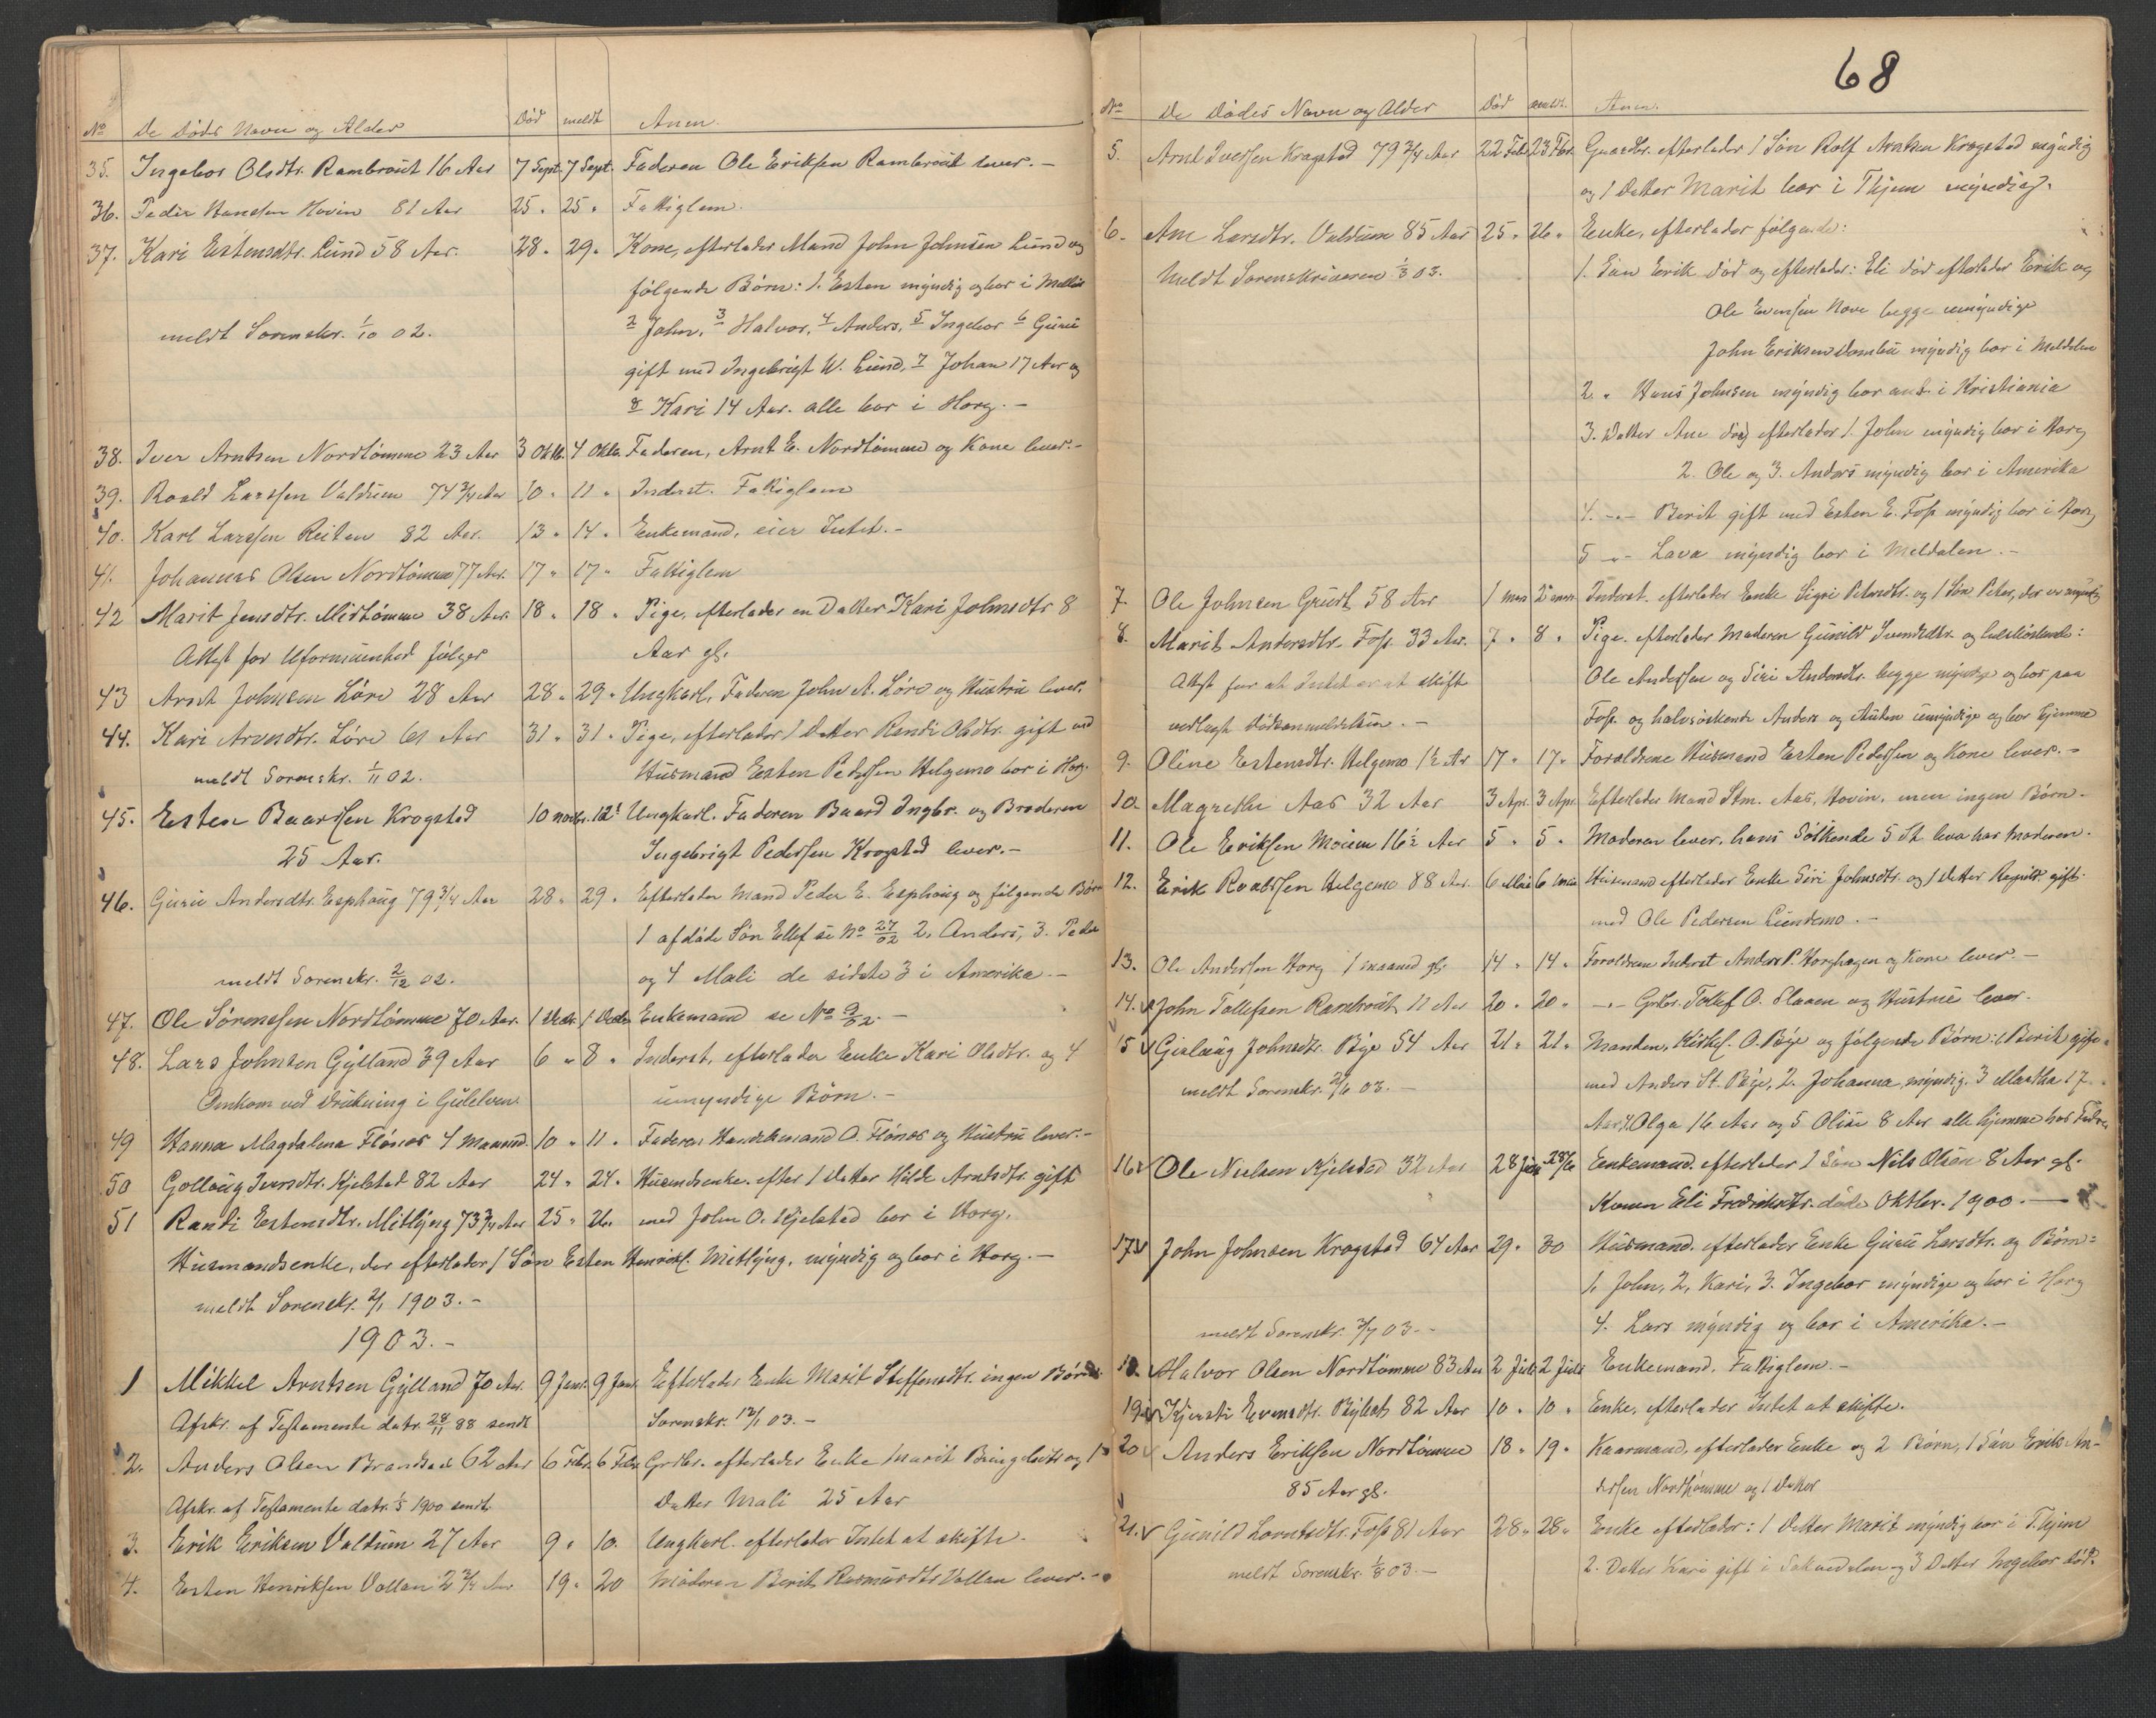 No De Døds Navn og Alder Død meldt Anm.
35. Ingebor Olsdtr. Rambraut 16 Aar 7 Sept. 7 Sept. Faderen Ole Eriksen Rambraut lever. -
36. Peder Hansen Hovin 81 Aar 25 " 25 " Fattiglem.
37. Kari Estensdtr. Lund 58 Aar. 28 " 29 " Kone, efterlader Mand John Johnsen Lund og
følgende Børn: 1. Esten myndig og bor i
meldt Sorenskr. 1/10 02. 2 John, 3 Halvor, 4 Anders, 5 Ingebor 6 Guru
gift med Ingebrigt W. Lund, 7 Johan 17 Aar og
8 Kari 14 Aar. alle bor i Horg. -
38. Iver Arntsen Nordtømme 23 Aar 3 Oktb. 4 Oktb. Faderen, Arnt E. Nordtømme og Kone lever. -
39. Roald Larssen Valdum 74 3/4 Aar 10 " 11 " Inderst. Fattiglem
40. Karl Larssen Reiten 82 Aar. 13 " 14 " Enkemand, eier Intet. -
41. Johannes Olsen Nordtømme 77 Aar. 17 " 17 " Fattiglem
42 Marit Jensdtr. Midtømme 38 Aar. 18 " 18 " Pige, efterlader en Datter Kari Johnsdtr 8
Attest for Uformuenhed følger Aar gl.
43 Arnt Johnsen Løre 28 Aar 28 " 29 " Ungkarl, Faderen John A. Løre og Hustru lever.
44. Kari Arnsdtr. Løre 61 Aar 31 " 31 " Pige, efterlader 1 Datter Randi Olsdtr. gift med
meldt Sorenskr. 1/11 02. Husmand Esten Pedersen Helgemo bor i Horg.
45. Esten Baarssen Krogstad 10 novbr. 12 Ungkarl. Faderen Baard Ingbr. og Broderen
25 Aar. Ingebrigt Pedersen Krogstad lever. -
46. Guru Andersdtr. Esphaug 79 3/4 Aar 28 " 29 " Efterlader Mand Peder E. Esphaug og følgende Børn
1 afdøde Søn Ellef se No 27/02 2. Anders, 3. Peder
meldt Sorenskr. 2/12 02. og 4 Mali de sidste 3 i Amerika. -
47. Ole Sørensen Nordtømme 70 Aar. 1 Decbr. 1 Decbr Enkemand se No 9/02. -
48. Lars Johnsen Gylland 39 Aar 6 " 8 " Inderst, efterlader Enke Kari Olsdtr. og 4
Omkom ved Drukning i Gulelven umyndige Børn. -
49 Hanna Magdalena Flønes 4 Maaned. 10 " 11 " Faderen Handelsmand O. Flønes og Hustru lever. -
50 Gollaug Iversdtr. Kjelstad 82 Aar 24 " 24 " Husmdsenke. efter 1 Datter Hilde Arntsdtr. gift
51 Randi Estensdtr. Mitlyng 73 3/4 Aar 25 " 26. med John O. Kjelstad bor i Horg.
Husmandsenke, der efterlader 1 Søn Esten Henriks. Mitlyng, myndig og bor i Horg. -
meldt Sorenskr. 2/1 1903. -
1903. -
1 Mikkel Arntsen Gylland 70 Aar. 9 Janr. 9 Janr Efterlader Enke Marit Steffensdtr. ingen Børn.
Afskr. af Testamente datr. 28/11 88 sendt Sorenskr. 12/1 03. -
2. Anders Olsen 62 Aar 6 Febr. 6 Febr. Grdbr. efterlader Enke Marit og 1
Afskr. af Testamente datr. 1/5 1900 sendt. Datter Mali 25 Aar
3. Erik Eriksen Valdum 27 Aar 9 " 10. Ungkarl. efterlader Intet at skifte.
4. Esten Henriksen Vollan 2 3/4 Aar 19 " 20 Moderen Berit Rasmusdtr Vollan lever. -
68
No De Dødes Navn og Alder Død meldt. Anm.
5. Arnt Iversen Krogstad 79 3/4 Aar 22 Feb. 23 Fbr. Gaardbr. efterlader 1 Søn Rolf Arntsen Krogstad myndig
og 1 Datter Marit bor i Thjem myndig.
6. Ane Larsdtr. Valdum 85 Aar 25 " 26 " Enke, efterlader følgende:
Meldt Sorenskriveren 1/3 03. 1. Søn Erik død og efterlader: Eli død efterlader Erik og
Ole Evensen Hove begge umyndige
John Eriksen myndig bor i Meldalen
2. " Hans Johnsen myndig bor i Kristiania
3. Datter Ane død efterlader 1. John myndig bor i Horg
2. Ole og 3. Anders myndig bor i Amerika
4. -"- Berit gift med Esten E. Foss myndig bor i Horg
5 -"- Lava myndig bor i Meldalen. -
7. Ole Johnsen Grust 58 Aar 1 mars 2 mars. Inderst. efterlader Enke Sigri Petersdtr. og 1 Søn Peter, der er myndig
8. Marit Andersdtr. Foss. 33 Aar. 7 " 8 " Pige. efterlader Moderen Gunild Svendsdtr. og helsøskende:
Attest for at Intet er at skifte Ole Anderssen og Siri Andersdtr. begge myndige og bor paa
vedlagt Dødsanmeldelsen. - Foss. og halvsøskende Anders og umyndige og bor hjemme
9. Oline Estensdtr. Helgemo 1 1/2 Ar 17 " 17 " Forældrene Husmand Esten Pedersen og Kone lever. -
10. Magrethe Aas 32 Aar 3 Apr. 3 Apr. Efterlader Mand Stm. Aas, Hovin, men ingen Børn.
11. Ole Eriksen Moum 16 1/2 Aar 5 " 5 " Moderen lever, hans Søskende 5 St. leva hos moderen.
12. Erik Roaldsen Helgemo 88 Aar. 6 Mai 6 Mai Husmand efterlader Enke Siri Johnsdtr. og 1 Datter Ragnild. gift
med Ole Pedersen Lundemo. -
13. Ole Andersen Horg 1 maaned gl. 14 " 14 " Forældrene Inderst Anders P. Horghagen og Kone lever. -
14. John Tollefsen Rambraut 11 Aar 20 " 20 " -"- Grdbr. Tollef O. Slaaen og Hustrue lever.
15 Gislaug Johnsdtr. Bøye 54 Aar 21 " 21 " Manden, O. Bøye og følgende Børn: 1 Berit gift
meldt Sorenskr. 2/6 03. - med Anders St. Bøye, 2. Johanna, myndig. 3 Martha 17
Aar, 4. Olga 16 Aar og 5 Oline 8 Aar alle hjemme hos Faderen
16 Ole Nielsen Kjelstad 32 Aar 28 Juni 28/6 Enkemand. efterlader 1 Søn Nils Olsen 8 Aar gl.
Konen Eli Fredriksdtr. døde Oktbr. 1900. -
17 John Johnsen Krogstad 64 Aar 29 " 30 Husmand. efterlader Enke Guru Larsdtr. og Børn:
1. John, 2. Kari, 3. Ingebor myndige og bor i Horg
meldt Sorenskr. 2/7 03. - 4. Lars myndig og bor i Amerika. -
18. Halvor Olsen Nordtømme 83 Aar 2 Juli 2 Juli Enkemand. Fattiglem. -
19 Kjersti Evensdtr. 82 Aar 10 " 10 " Enke, efterlader Intet at skifte.
20 Anders Eriksen Nordtømme 18 " 19 " Kaarmand, efterlader Enke og 2 Børn, 1 Søn Erik An-
85 Aar gl. dersen Nordtømme og 1 Datter
21. Gunild Larntsdtr. Foss 81 Aar 28 " 28 " Enke efterlader: 1 Datter Marit myndig bor i Thjem
meldt Sorenskr. 1/8 03. - 2. Datter Kari gift i Soknedalen og 3 Datter Ingebor død.